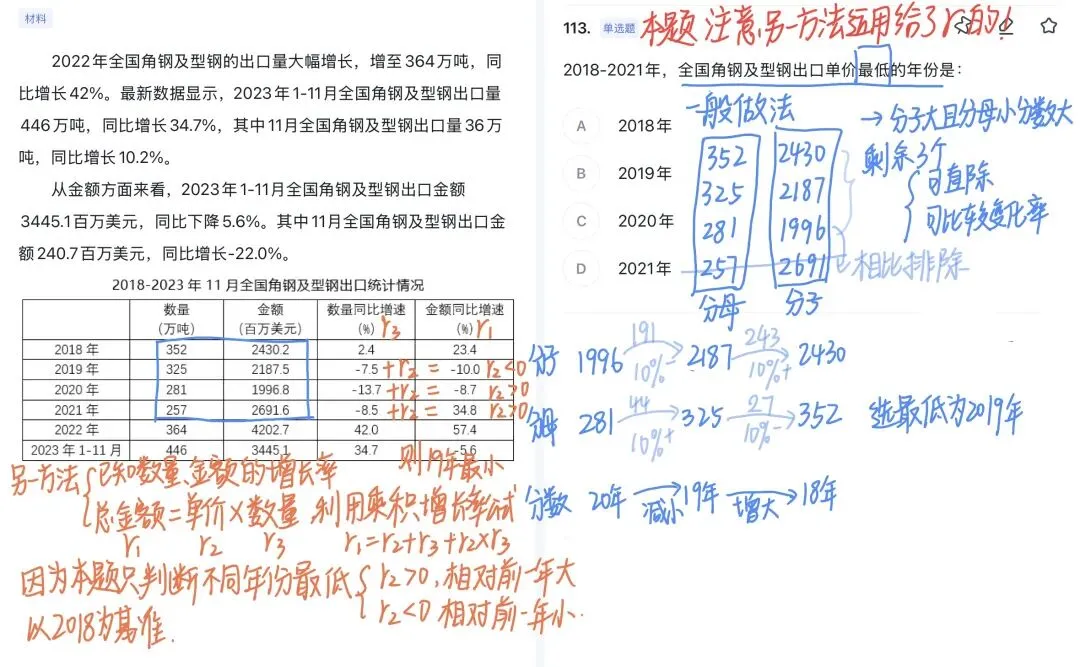 材料
2022年全国角钢及型钢的出口量大幅增长，增至364万吨，同
比增长42%。最新数据显示，2023年1-11月全国角钢及型钢出口量
446万吨，同比增长34.7%，其中11月全国角钢及型钢出口量36万
吨，同比增长10.2%。
从金额方面来看，2023年1-11月全国角钢及型钢出口金额
3445.1百万美元，同比下降5.6%。其中11月全国角钢及型钢出口金
额240.7百万美元，同比增长-22.0%。
2018-2023年11月全国角钢及型钢出口统计情况
数量（万吨） 金额（百万美元） 数量同比增速（%） r3 金额同比增速（%） r1
2018年 352 2430.2 2.4 23.4
2019年 325 2187.5 -7.5 +r2 = -10.0 r2<0
2020年 281 1996.8 -13.7 +r2 = -8.7 r2>0
2021年 257 2691.6 -8.5 +r2 = 34.8 r2>0
2022年 364 4202.7 42.0 57.4
2023年1-11月 446 3445.1 34.7 -5.6
则19年最小
另一方法 已知数量、金额的增长率
总金额=单价×数量 利用乘积增长率公式
r1 r2 r3 r1=r2+r3+r2×r3
因为本题只判断不同年份最低 r2>0，相对前一年大
以2018为基准. r2<0 相对前一年小.
113. 单选题 本题注意另一方法运用给了r的！
2018-2021年，全国角钢及型钢出口单价最低的年份是：
一般做法 → 分子大且分母小分数大
A 2018年 352 2430 剩余3个
B 2019年 325 2187 可直除
C 2020年 281 1996 可比较变化率
D 2021年 257 2691 相比排除
分母 分子
分子 1996 191 10%- 2187 243 10%+ 2430
分母 281 44 10%+ 325 27 10%- 352 选最低为2019年
分数 20年 减小 19年 增大 18年